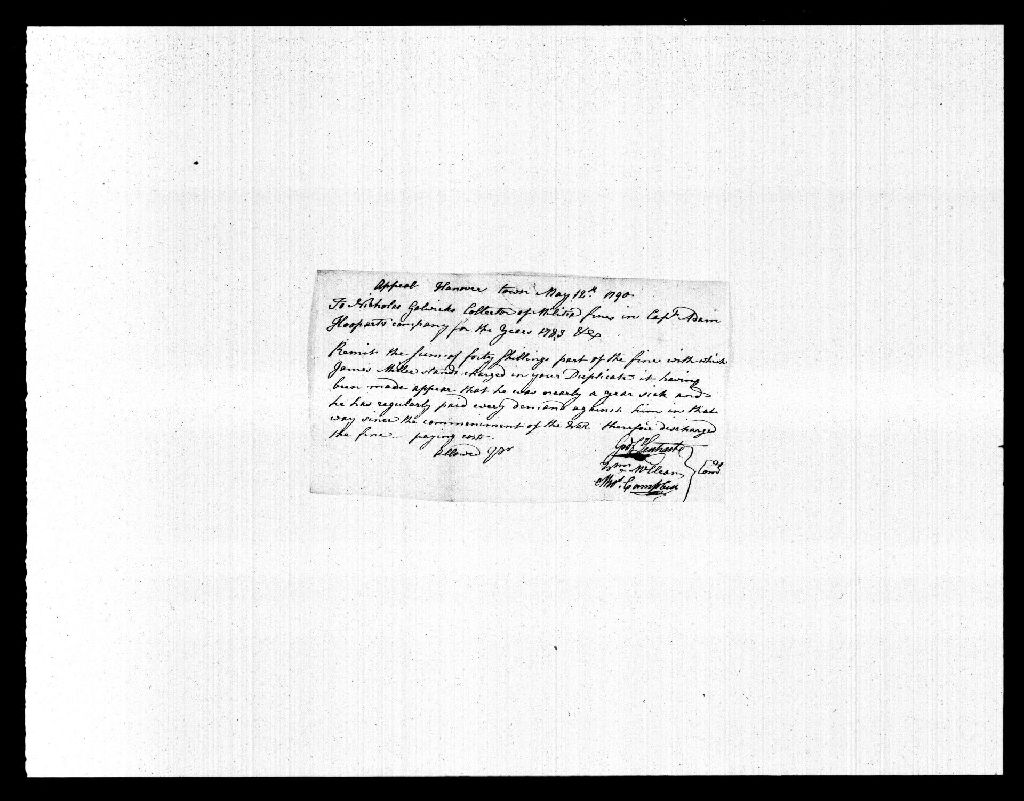 Appeal Hanover town May 12th 1790
To Nicholas Collector of Militia fines in Capt. Adam
company for the Years 1783 &c
Remit the Sum of forty Shillings part of the fine with which
James Miller stands charged in your Duplicate it having
been made appear that he was nearly a year sick and
he has regularly paid every demand against him in that
way since the commencement of the War therefore discharge
the fine paying cost
allowed
Wm McClean Com
Campbell